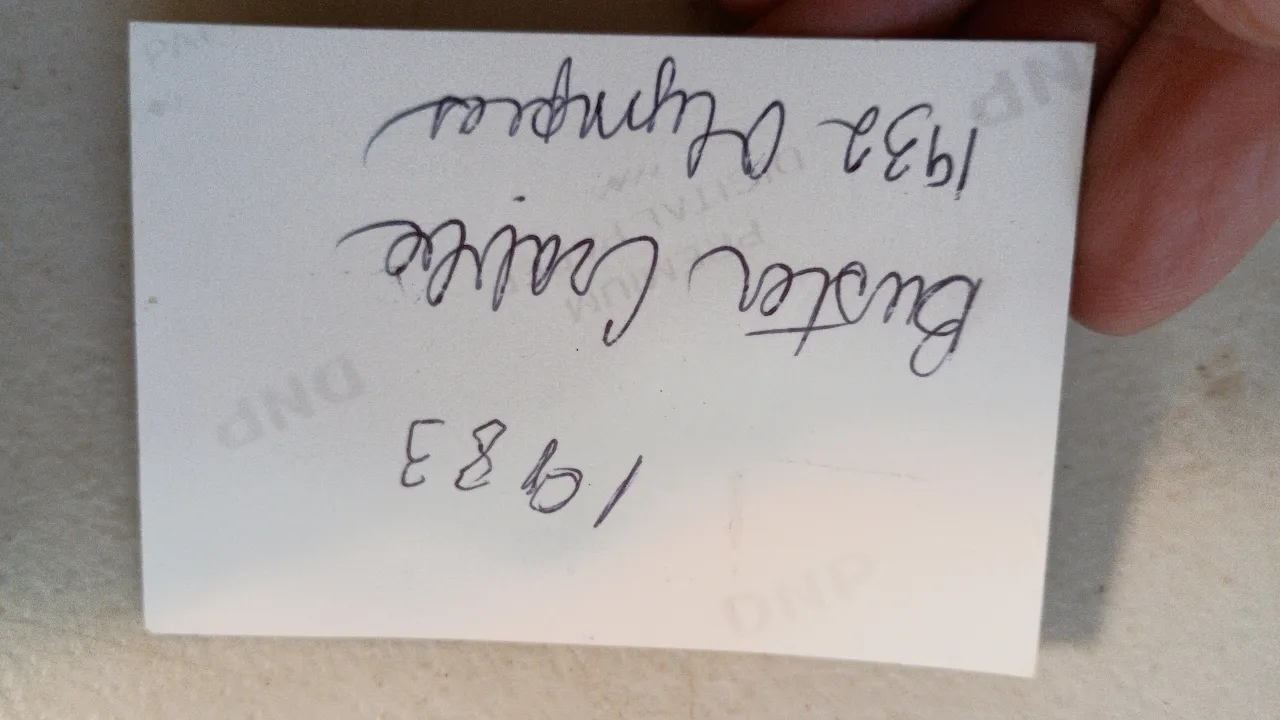 DNP
1983
DNP
Buster Crabbe
PREMIUM
DIGITAL
1932 Olympics
DNP